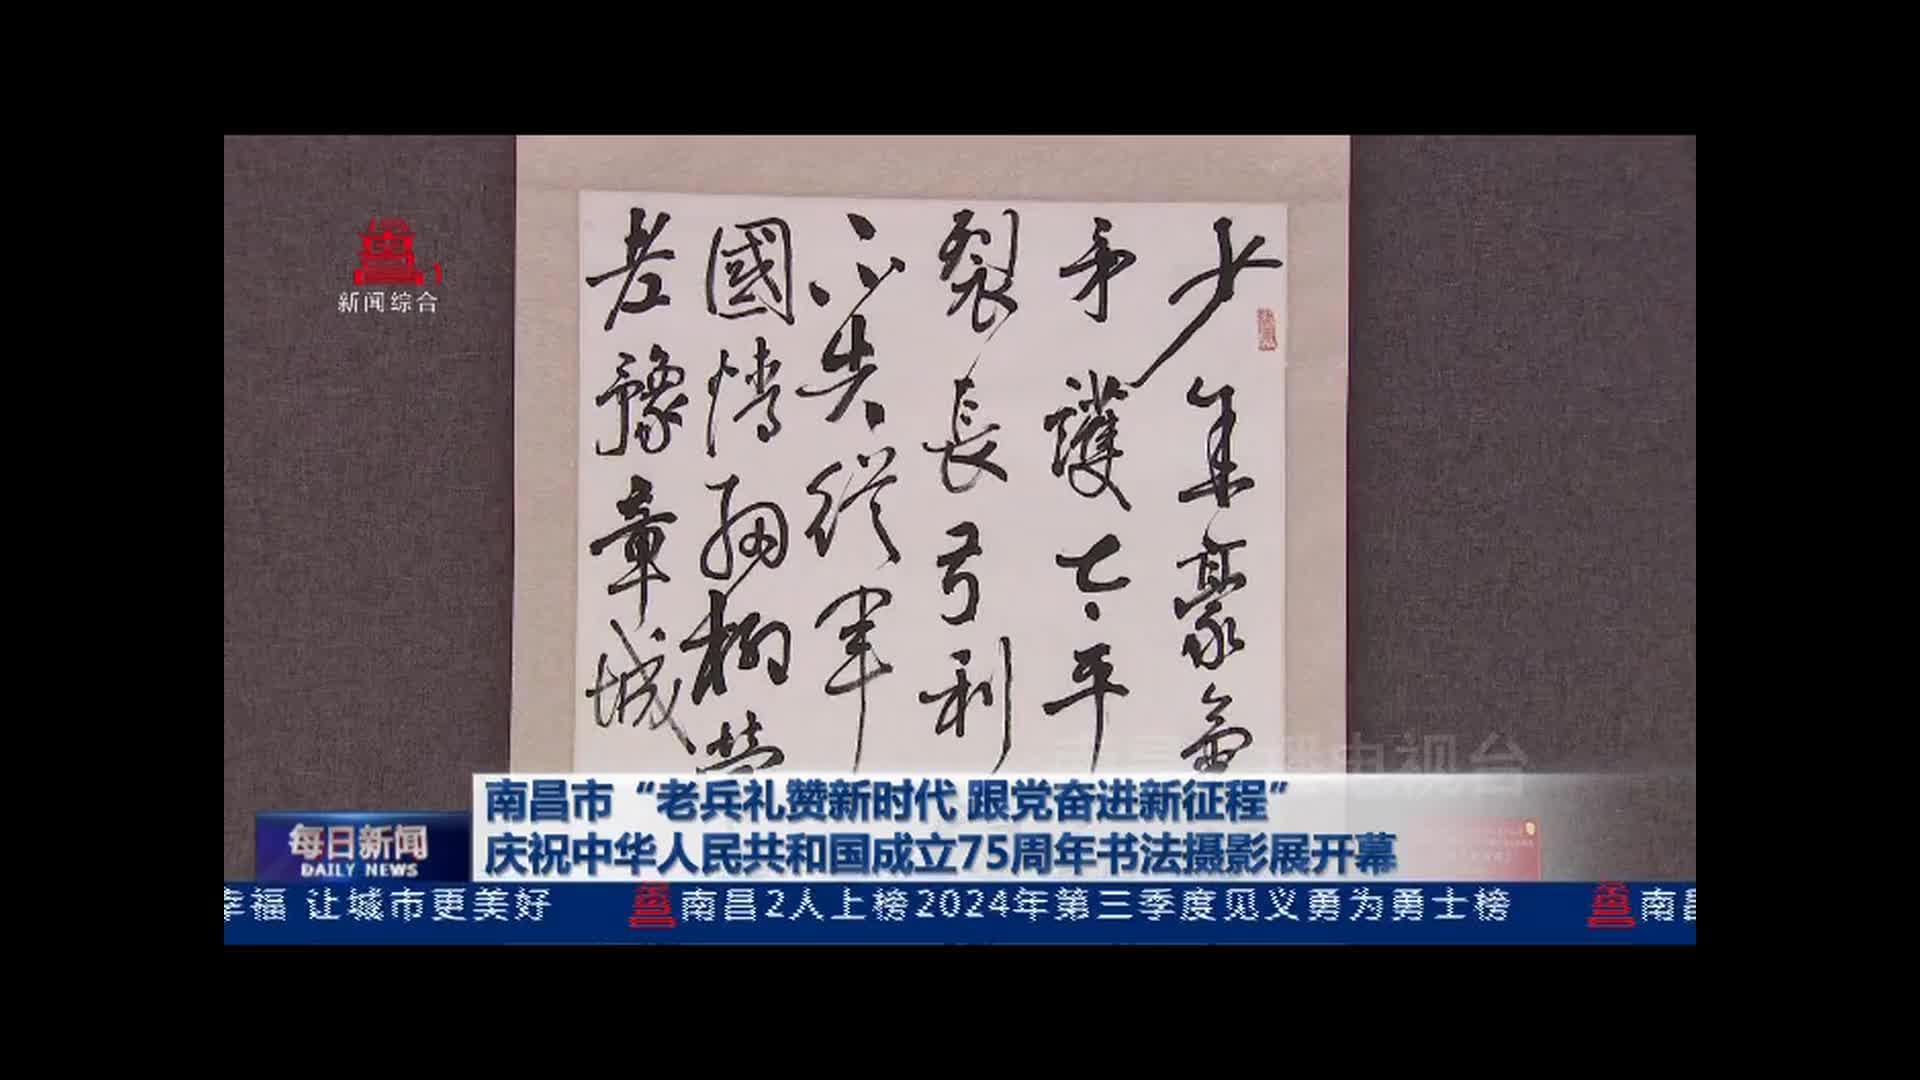 1
新闻综合
少年豪氣
護平
裂長弓利
不失從軍
國情細柳營
老豫章城
南昌广播电视台
南昌市“老兵礼赞新时代 跟党奋进新征程”
庆祝中华人民共和国成立75周年书法摄影展开幕
每日新闻
DAILY NEWS
幸福 让城市更美好 南昌2人上榜2024年第三季度见义勇为勇士榜 南昌